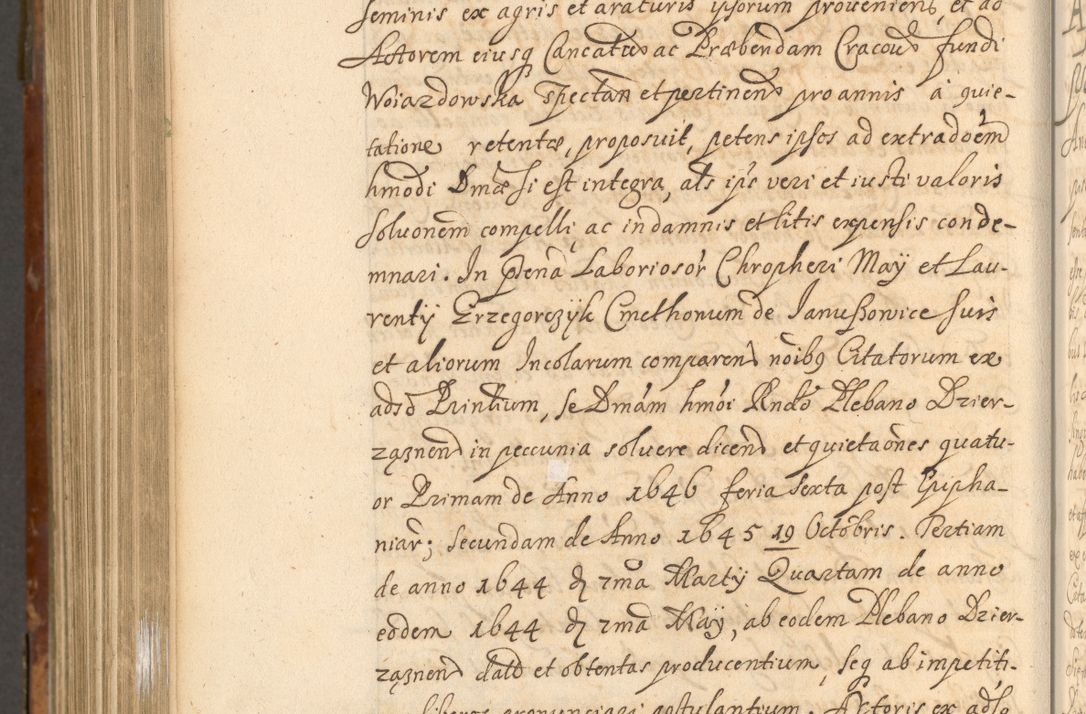 seminis ex agris et araturis ipsorum provenien, et ad
Actorem eiusq Cancatus ac Præbendam Cracov fundi
Woiazdowska spectan et pertinen pro annis à quie-
tatione retentæ, proposuit, petens ipsos ad extradoem
hmodi Dmæ si est integra, als ips veri et iusti valoris
soluonem compelli, ac in damnis et litis expensis conde-
mnari. In pñenã Laboriosor Chropheri Maÿ et Lau-
rentÿ Grzegorczÿk Cmethonum de Janußowice suis
et aliorum Incolarum comparen nõibq Citatorum ex
adsd Printium, se Dmãm hmõi Rndo Plebano Dzier-
ząznen in peccunia solvere dicen et quietaões quatu-
or Primam de Anno 1646 feria sexta post Epipha-
niar; Secundam de Anno 1645 19 Octobris. Tertiam
de anno 1644 d 7ma Martÿ Quartam de anno
eodem 1644 d 7ma Maÿ, ab eodem Plebano Dzier-
ząznen dato et obtentas producentium, seq ab impetiti-
liberos pronunciari postulantium. Actoris ex adsq